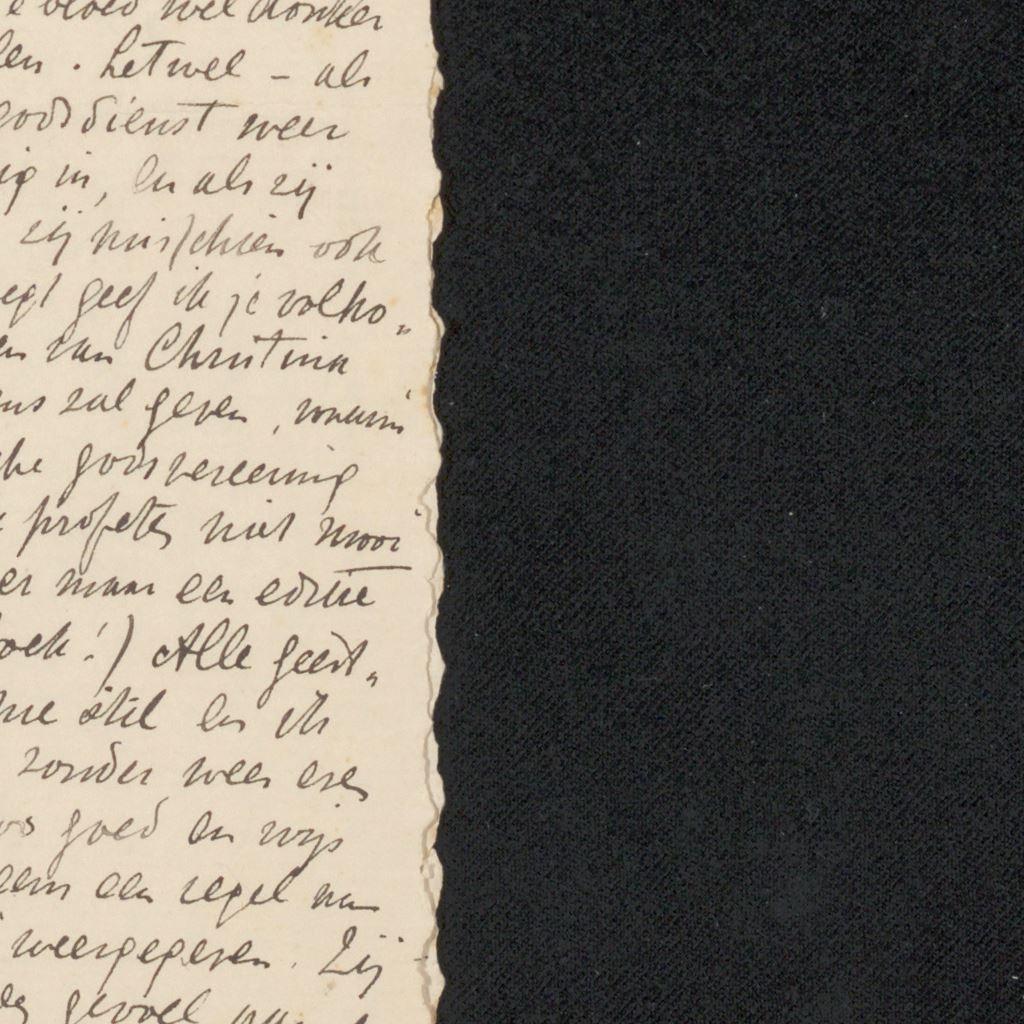 bloed wel donker
len. Letwel – als
godsdienst weer
ig in, en als zij
zij misschien ook
egt geef ik je volko„
en van Christina
ens zal geven, waarin
che godsvereening
profetes niet mooi
er maar een editie
oek!) Alle geest„
me stil en ik
zonder weer eren
goed en wijs
eens een regel van
weergegeven. Zij
gevoel